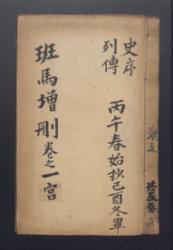 史序
列傳
丙午春始抄己酉冬畢
班馬增刪 卷之一 宮